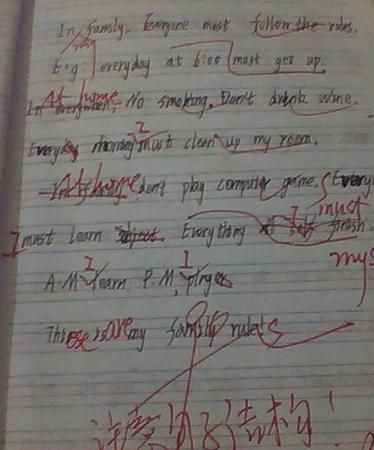 In family. Everyone must follow the rules.
E.g. everyday at 6:00 must get up.
At home, No smoking. Don't drink wine.
Everyday morning I must clean up my room.
At home don't play computer game. Every
I must learn Everything I must finish.
A.M I learn, P.M, I play
These are my family rules
注意句子结构!